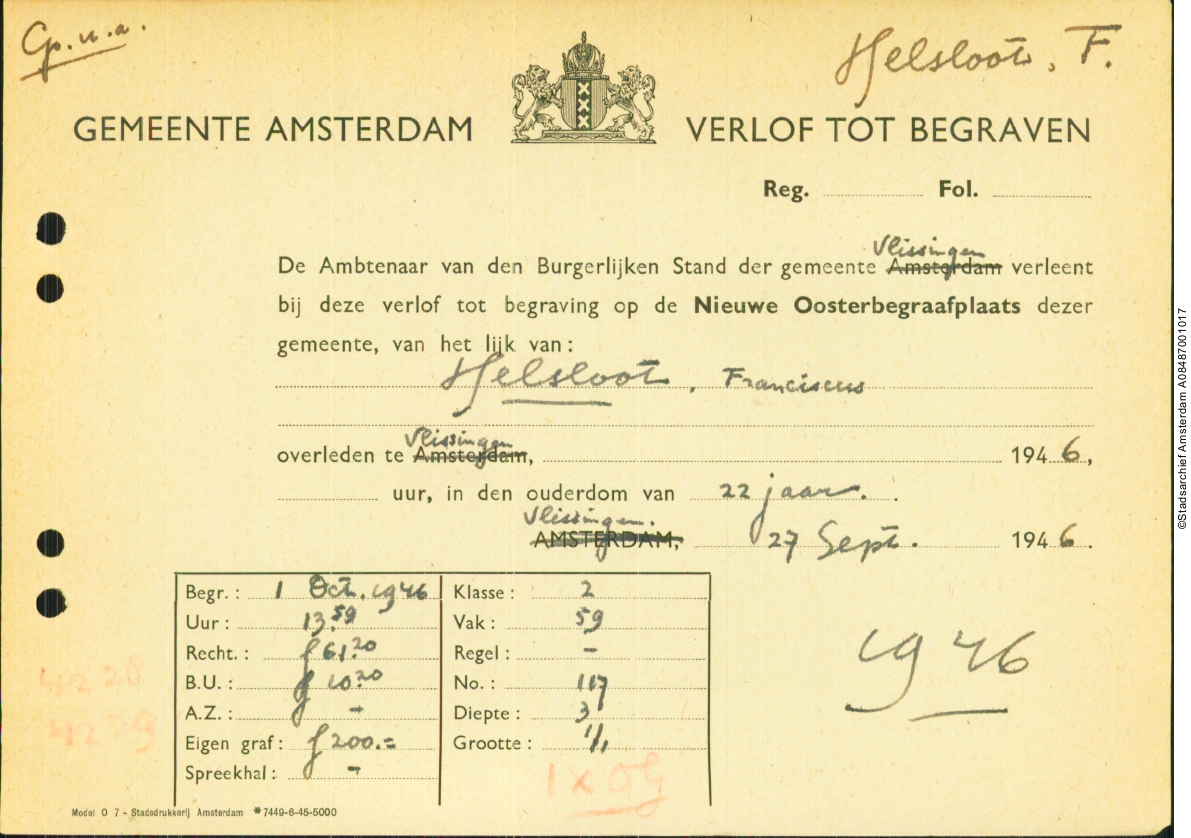 Gp. u. a.
Helsloot, F.
GEMEENTE AMSTERDAM
VERLOF TOT BEGRAVEN
Reg. Fol.
Vlissingen
De Ambtenaar van den Burgerlijken Stand der gemeente Amsterdam verleent
bij deze verlof tot begraving op de Nieuwe Oosterbegraafplaats dezer
gemeente, van het lijk van:
Helsloot, Franciscus
Vlissingen
overleden te Amsterdam, 1946,
uur, in den ouderdom van 22 jaar.
Vlissingen.
AMSTERDAM, 27 Sept. 1946.
Begr.: 1 Oct. 1946
Uur: 13.59
Recht.: f 61.20
B.U.: f 10.20
A.Z.: -
Eigen graf: f 200.=
Spreekhal: -
Klasse: 2
Vak: 59
Regel: -
No.: 117
Diepte: 3
Grootte: 1/1
1 x OG
1946
4228
4229
Model O 7 - Stadsdrukkerij Amsterdam *7449-6-45-5000
©Stadsarchief Amsterdam A08487001017